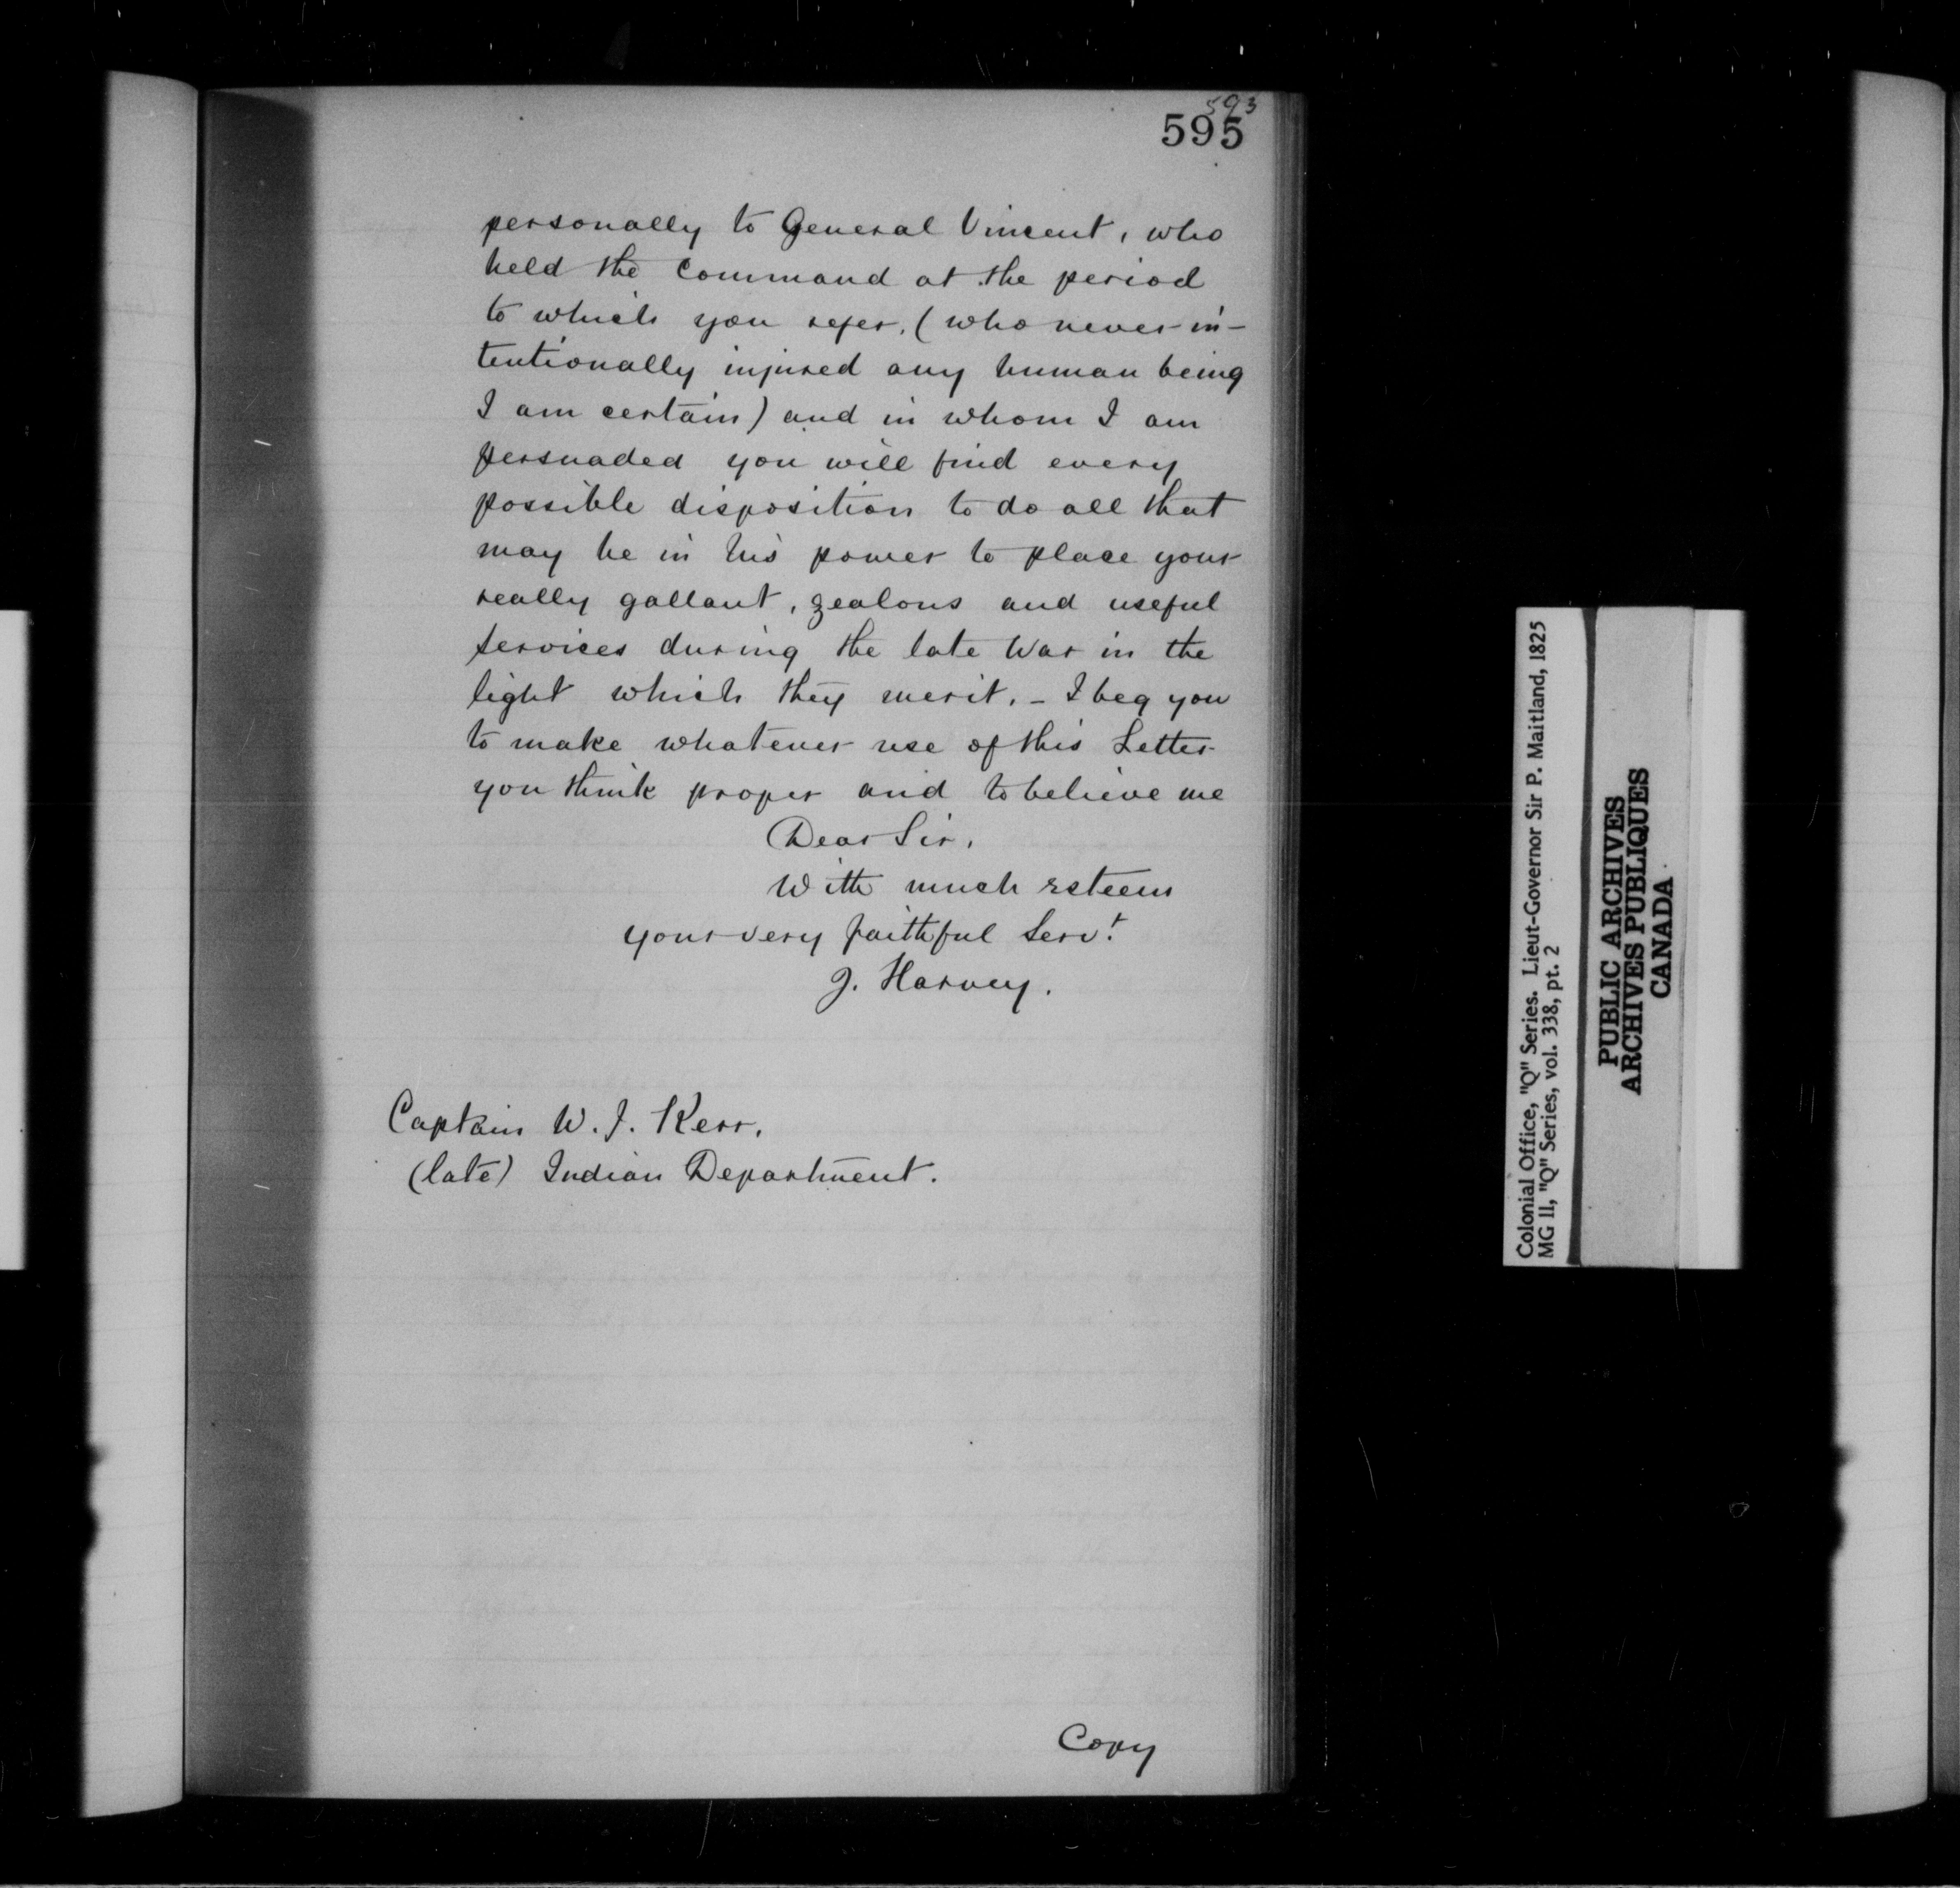 593
595
personally to General Vincent, who
held the Command at the period
to which you refer, (who never in-
tentionally injured any human being
I am certain) and in whom I am
persuaded you will find every
possible disposition to do all that
may be in his power to place your
really gallant, zealous and useful
services during the late War in the
light which they merit. - I beg you
to make whatever use of this Letter
you think proper and to believe me
Dear Sir,
With much esteem
your very faithful Servt
J. Harvey.
Captain W. J. Kerr,
(late) Indian Department.
Copy
Colonial Office, "Q" Series. Lieut-Governor Sir P. Maitland, 1825
MG 11, "Q" Series, vol. 338, pt. 2
PUBLIC ARCHIVES
ARCHIVES PUBLIQUES
CANADA